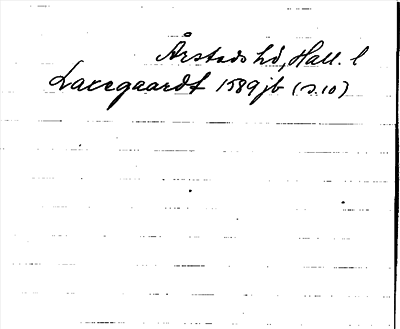 Årstads hd, Hall. l
Laccgaardt 1589 jb (s.10)